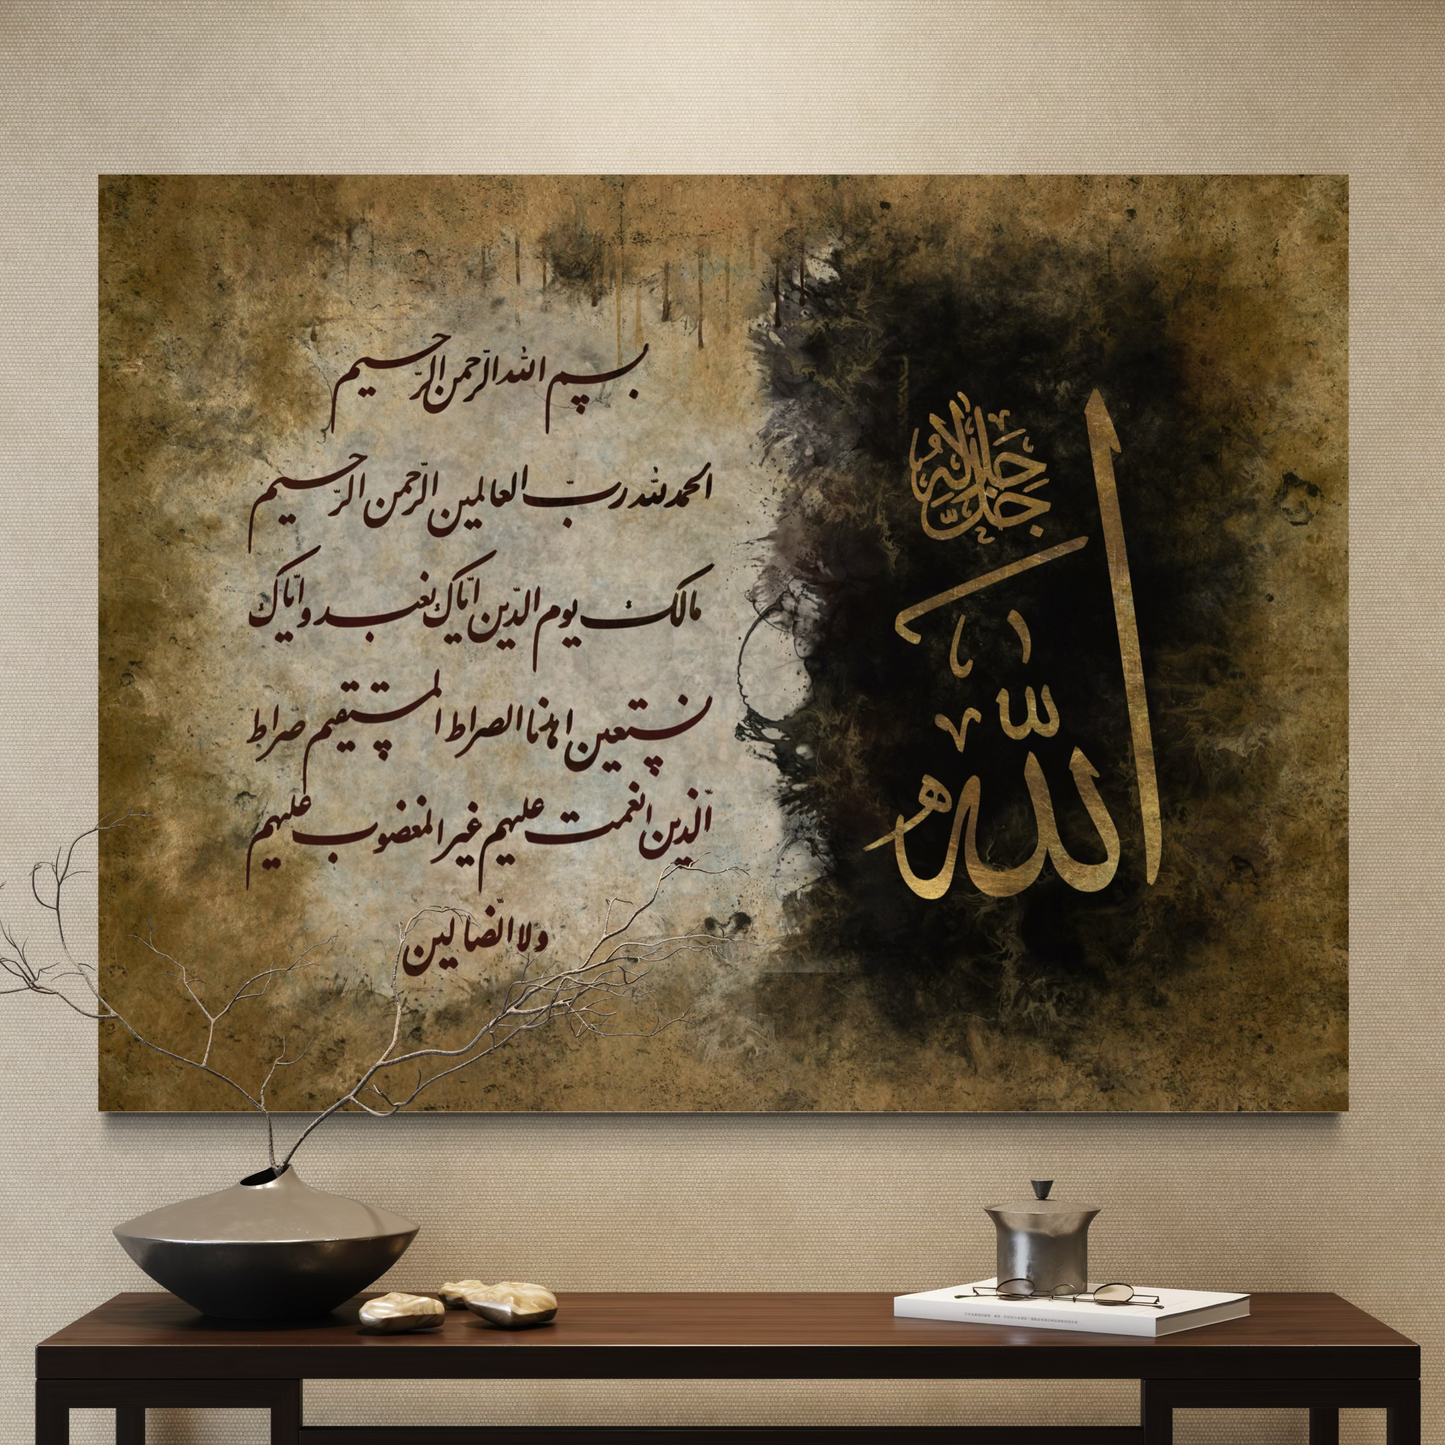 بسم الله الرّحمن الرّحیم
الحمدلله ربّ العالمین الرّحمن الرّحیم
مالک یوم الدّین ایّاک نعبد وایّاک
نستعین اهدنا الصراط المستقیم صراط
الّذین انعمت علیهم غیر المغضوب علیهم
ولا الّضالین
الله
جل جلاله